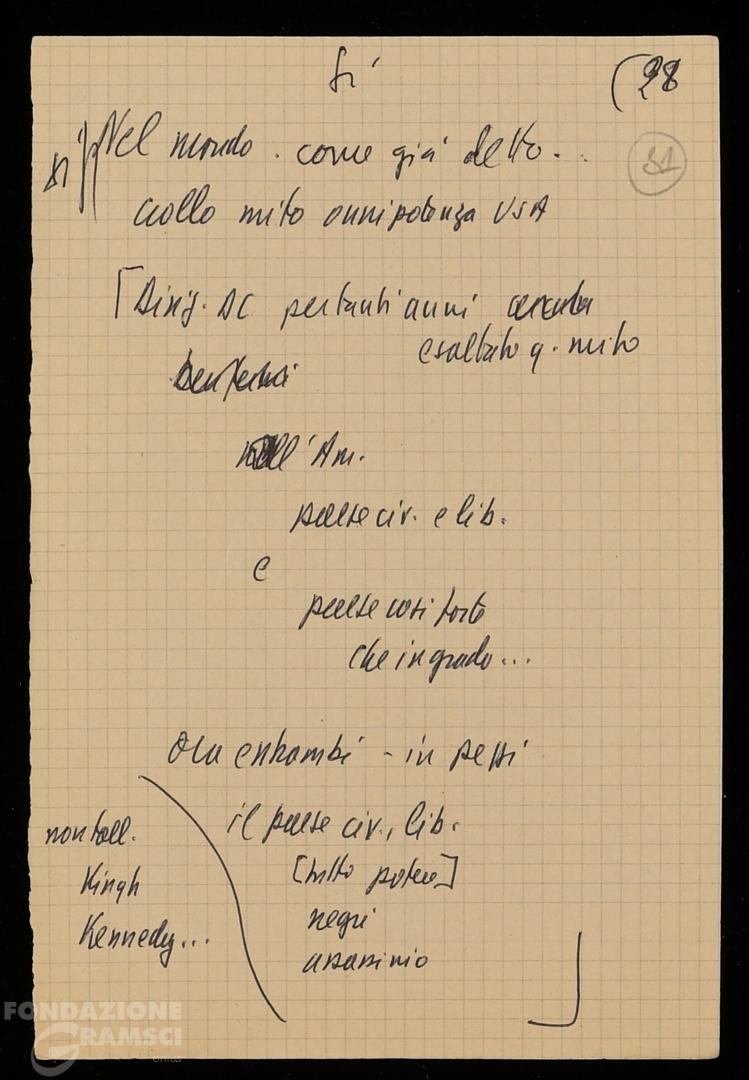 Sì
(28
sì Nel mondo. come già detto...
31
crollo mito onnipotenza USA
[Dirig. DC per tanti anni
esaltato q. mito
dell'Am.
paese civ. e lib.
e
paese così forte
che in grado...
Ora entrambi - in pezzi
il paese civ., lib.
non toll.
Kingh
Kennedy...
[tutto potere]
negri
assassinio
]
FONDAZIONE
GRAMSCI
onlus